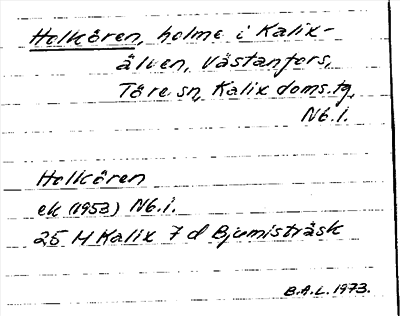 Holkören, holme i Kalix-
älven, Västanfors,
Töre sn, Kalix doms.tg,
Nb.i.
Holkören
ek (1953) Nb.i.
25 M Kalix 7 d Bjumisträsk
B.A.L. 1973.